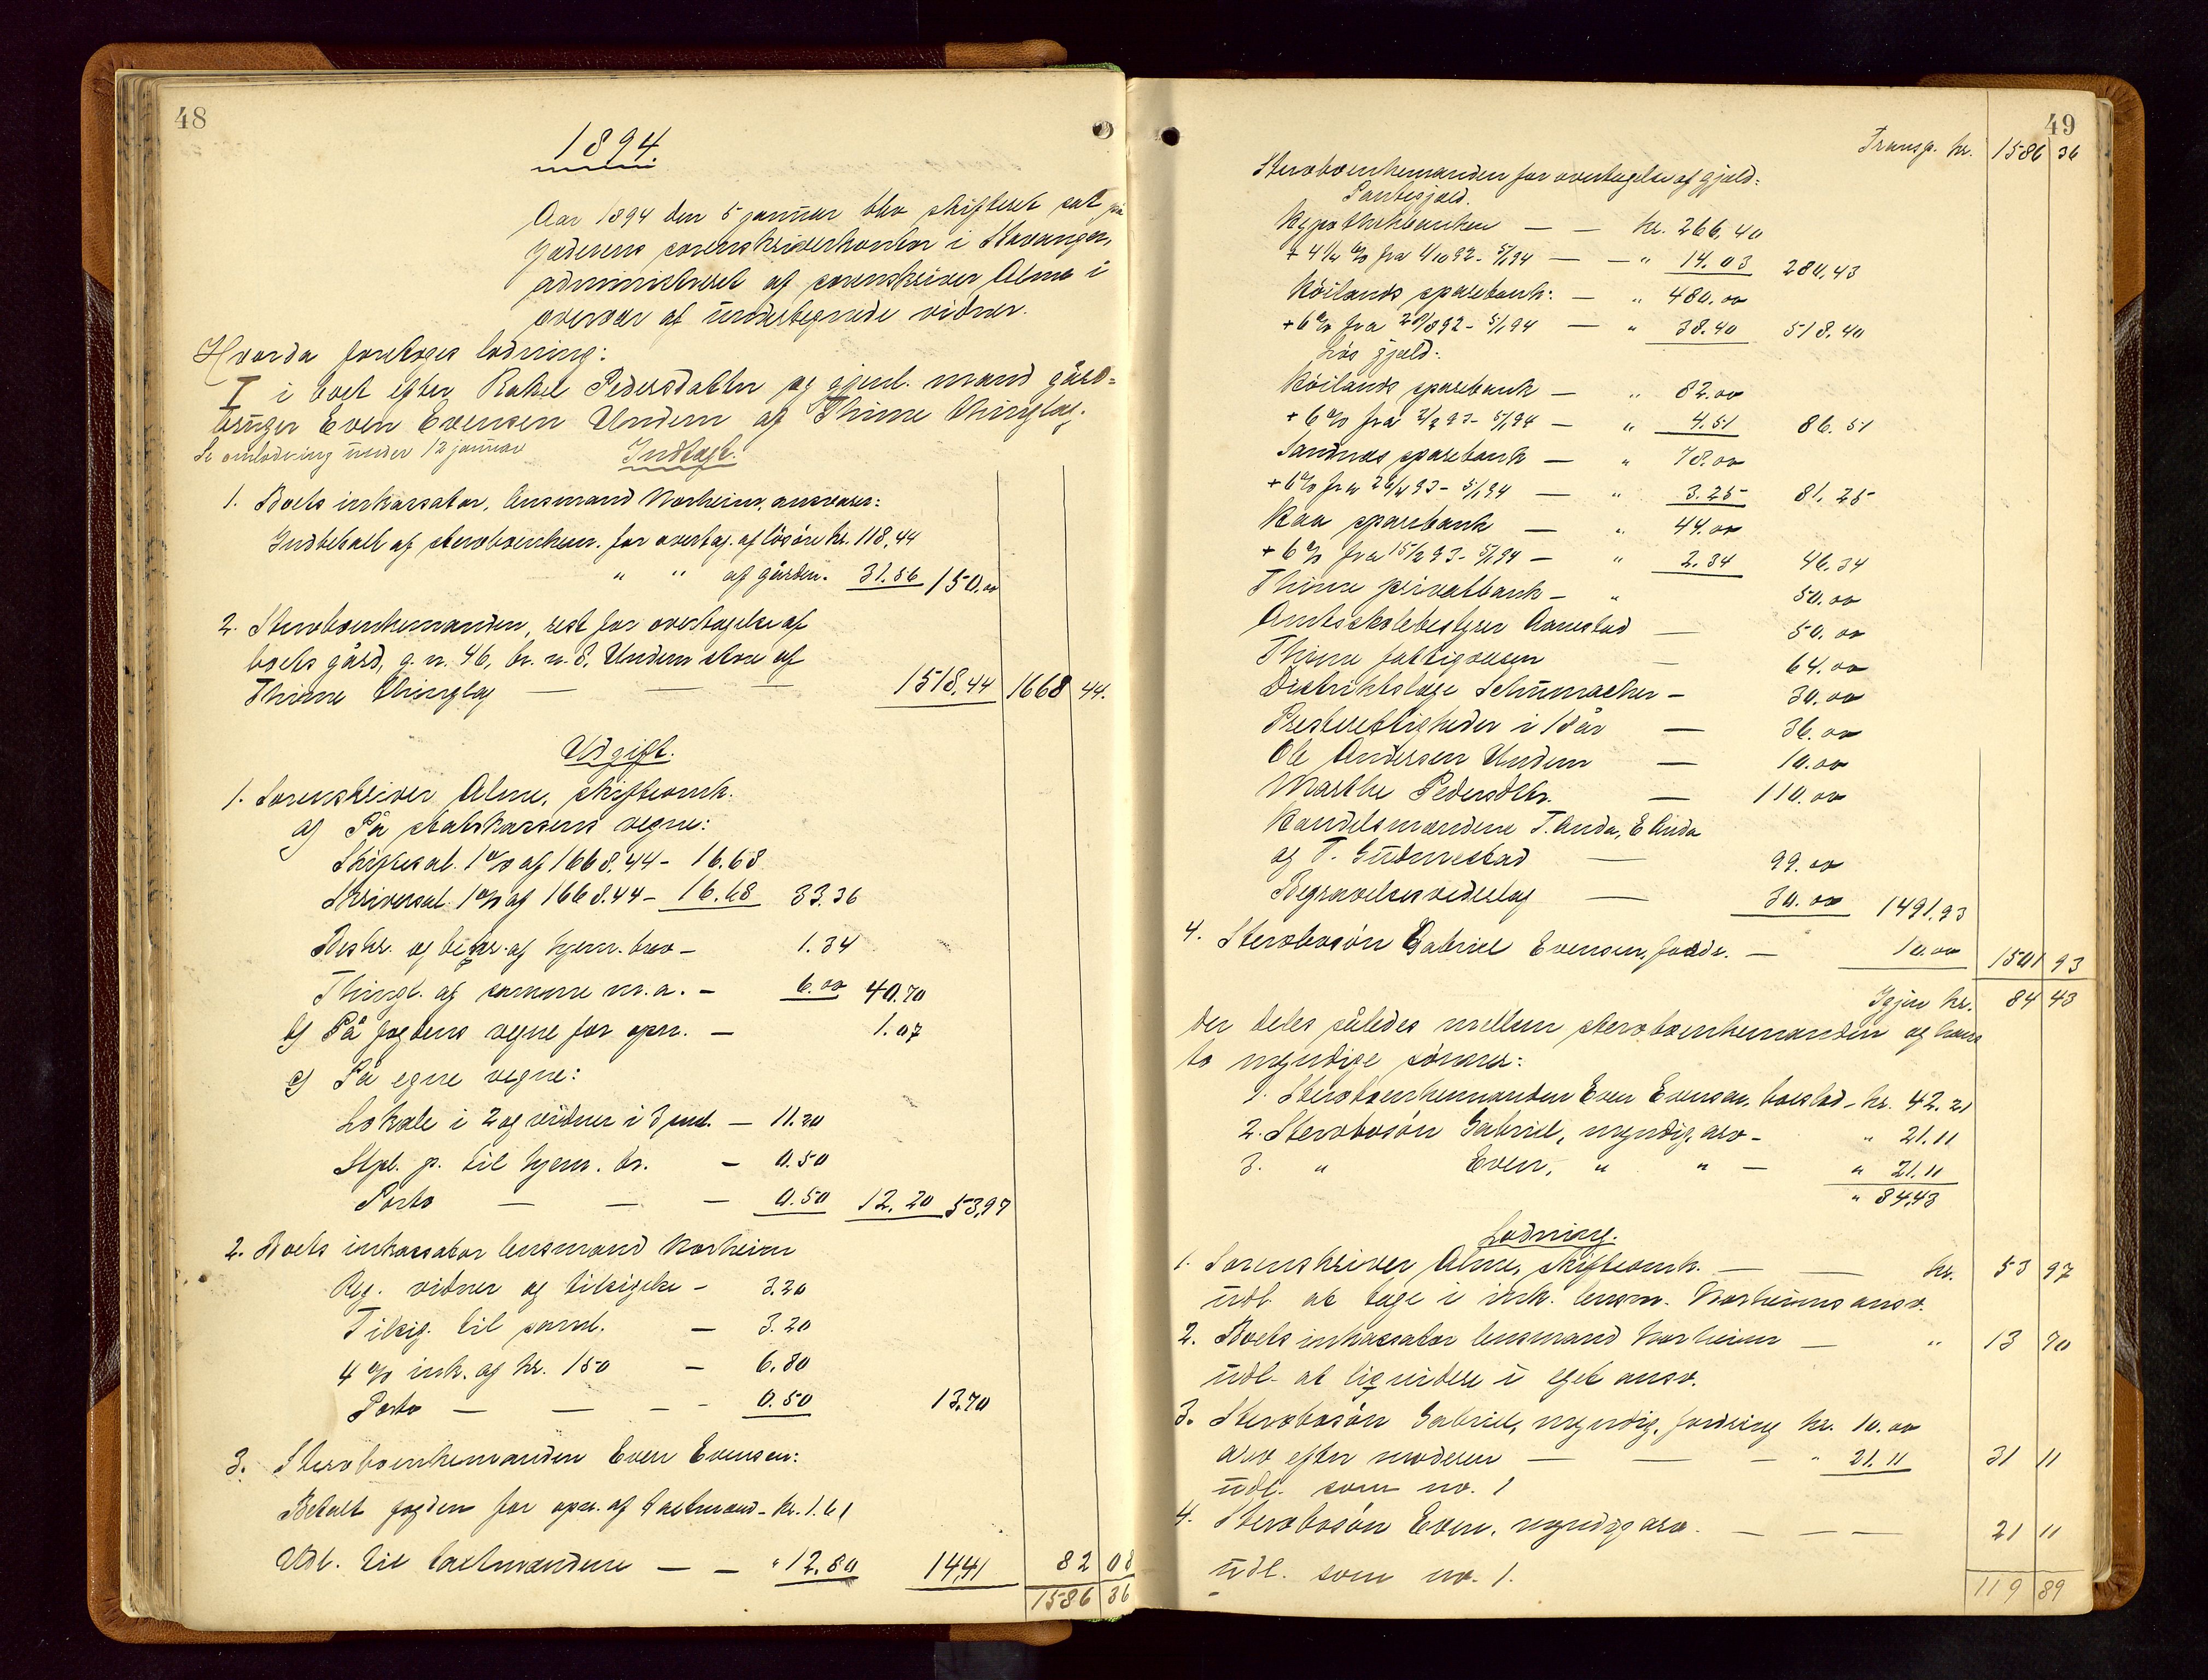 48
1894.
Aar 1894 den 5 januar blev skifteret sat på
Jæderens sorenskriverkontor i Stavanger,
administreret af sorenskriver Alme i
overvær af undertegnede vidner.
Hvorda foretoges lodning:
I i boet efter Rakel Pedersdatter og gjenl. mand gård=
bruger Even Evensen Undem af Thime thinglag.
Se omlodning under 12 januar
Indtægt.
1. Boets inkassator, lensmand Norheim, ansvarer:
Indbetalt af stervboenkem. for overtag. af lösöre kr. 118.44
" " af gården. 31.56 150.00
2. Stervboenkemanden, rest for overtagelse af
boets gård, g. n. 46, br. n. 8, Undem store af
Thime thinglag — — — 1518.44 1668 44.
Udgift.
1. Sorenskriver Alme, skifteomk.
a) På statskassens vegne:
Skiftesal. 1 % af 1668.44 - 16.68
Skriversal. 1 % af 1668.44 - 16.68 33.36
Beskr. og bekr. af hjem. brev - 1.34
Thingl. af samme m. a. - 6.00 40.70
b) På fogdens vegne for opn. - 1.07
c) På egne vegne:
Lokale i 2 og vidner i 3 saml. - 11.20
Stpl. p. til hjem. br. - 0.50
Porto — — - 0.50 12.20 53.97
2. Boets inkassator lensmand Norheim
Reg. vidner og tilsigelse - 3.20
Tilsig. til saml. - 3.20
4 % ink. af kr. 150 - 6.80
Porto — — - - 0.50 13.70
3. Stervboenkemanden Even Evensen:
Betalt fogden for opn. af taxtmænd - kr. 1.61
Udl. til taxtmændene — — " 12.80 14.41 82 08
1586 36
49
Transp. kr. 1586 36
Stervboenkemanden for overtagelse af gjæld:
Pantegjæld.
Hypothekbanken — — kr. 266.40
+ 4 1/4 % fra 1/10 92 - 5/1 94 — - " 14.03 280.43
Höilands sparebank: — " 480.00
+ 6 % fra 28/8 92 - 5/1 94 — " 38.40 518.40
Lös gjæld:
Höilands sparebank — " 82.00
+ 6 % fra 2/2 93 - 5/1 94 — " 4.51 86.51
Sandnæs sparebank — " 78.00
+ 6 % fra 26/4 93 - 5/1 94 — " 3.25 81.25
Haa sparebank — " 44.00
+ 6 % fra 15/2 93 - 5/1 94 — " 2.34 46.34
Thime privatbank — " 50.00
Amtsskolebestyrer Aanestad — 50.00
Thime fattigvæsen — 64.00
Distriktslæge Schumacher — 30.00
Presterettigheder i 18 år — 36.00
Ole Andersen Undem — 10.00
Marthe Pedersdtr. — 110.00
Handelsmændene T. Anda, E Anda
og T. Gudmestad — 99.00
Begravelsesvederlag — 30.00 1491.93
4. Stervbosön Gabriel Evensen, fordr. — 10.00 1501 93
Igjen kr. 84 43
der deles således mellem stervboenkemanden og hans
to myndige sönner:
1. Stervboenkemanden Even Evensen, boslod - kr. 42.21
2. Stervbosön Gabriel, myndig, arv - " 21.11
3. " Even, " " — " 21.11
" 84.43
Lodning.
1. Sorenskriver Alme, skifteomk. — — kr. 53 97
udl. at tage i ink. lensm. Norheims ansv.
2. Boets inkassator lensmand Norheim — " 13 70
udl. at liqvidere i eget ansv.
3. Stervbosön Gabriel, myndig, fordring kr. 10.00
arv efter moderen — — - " 21.11 31 11
udl. som no. 1
4. Stervbosön Even, myndig arv. — — — 21 11
udl. som no. 1.
119 89